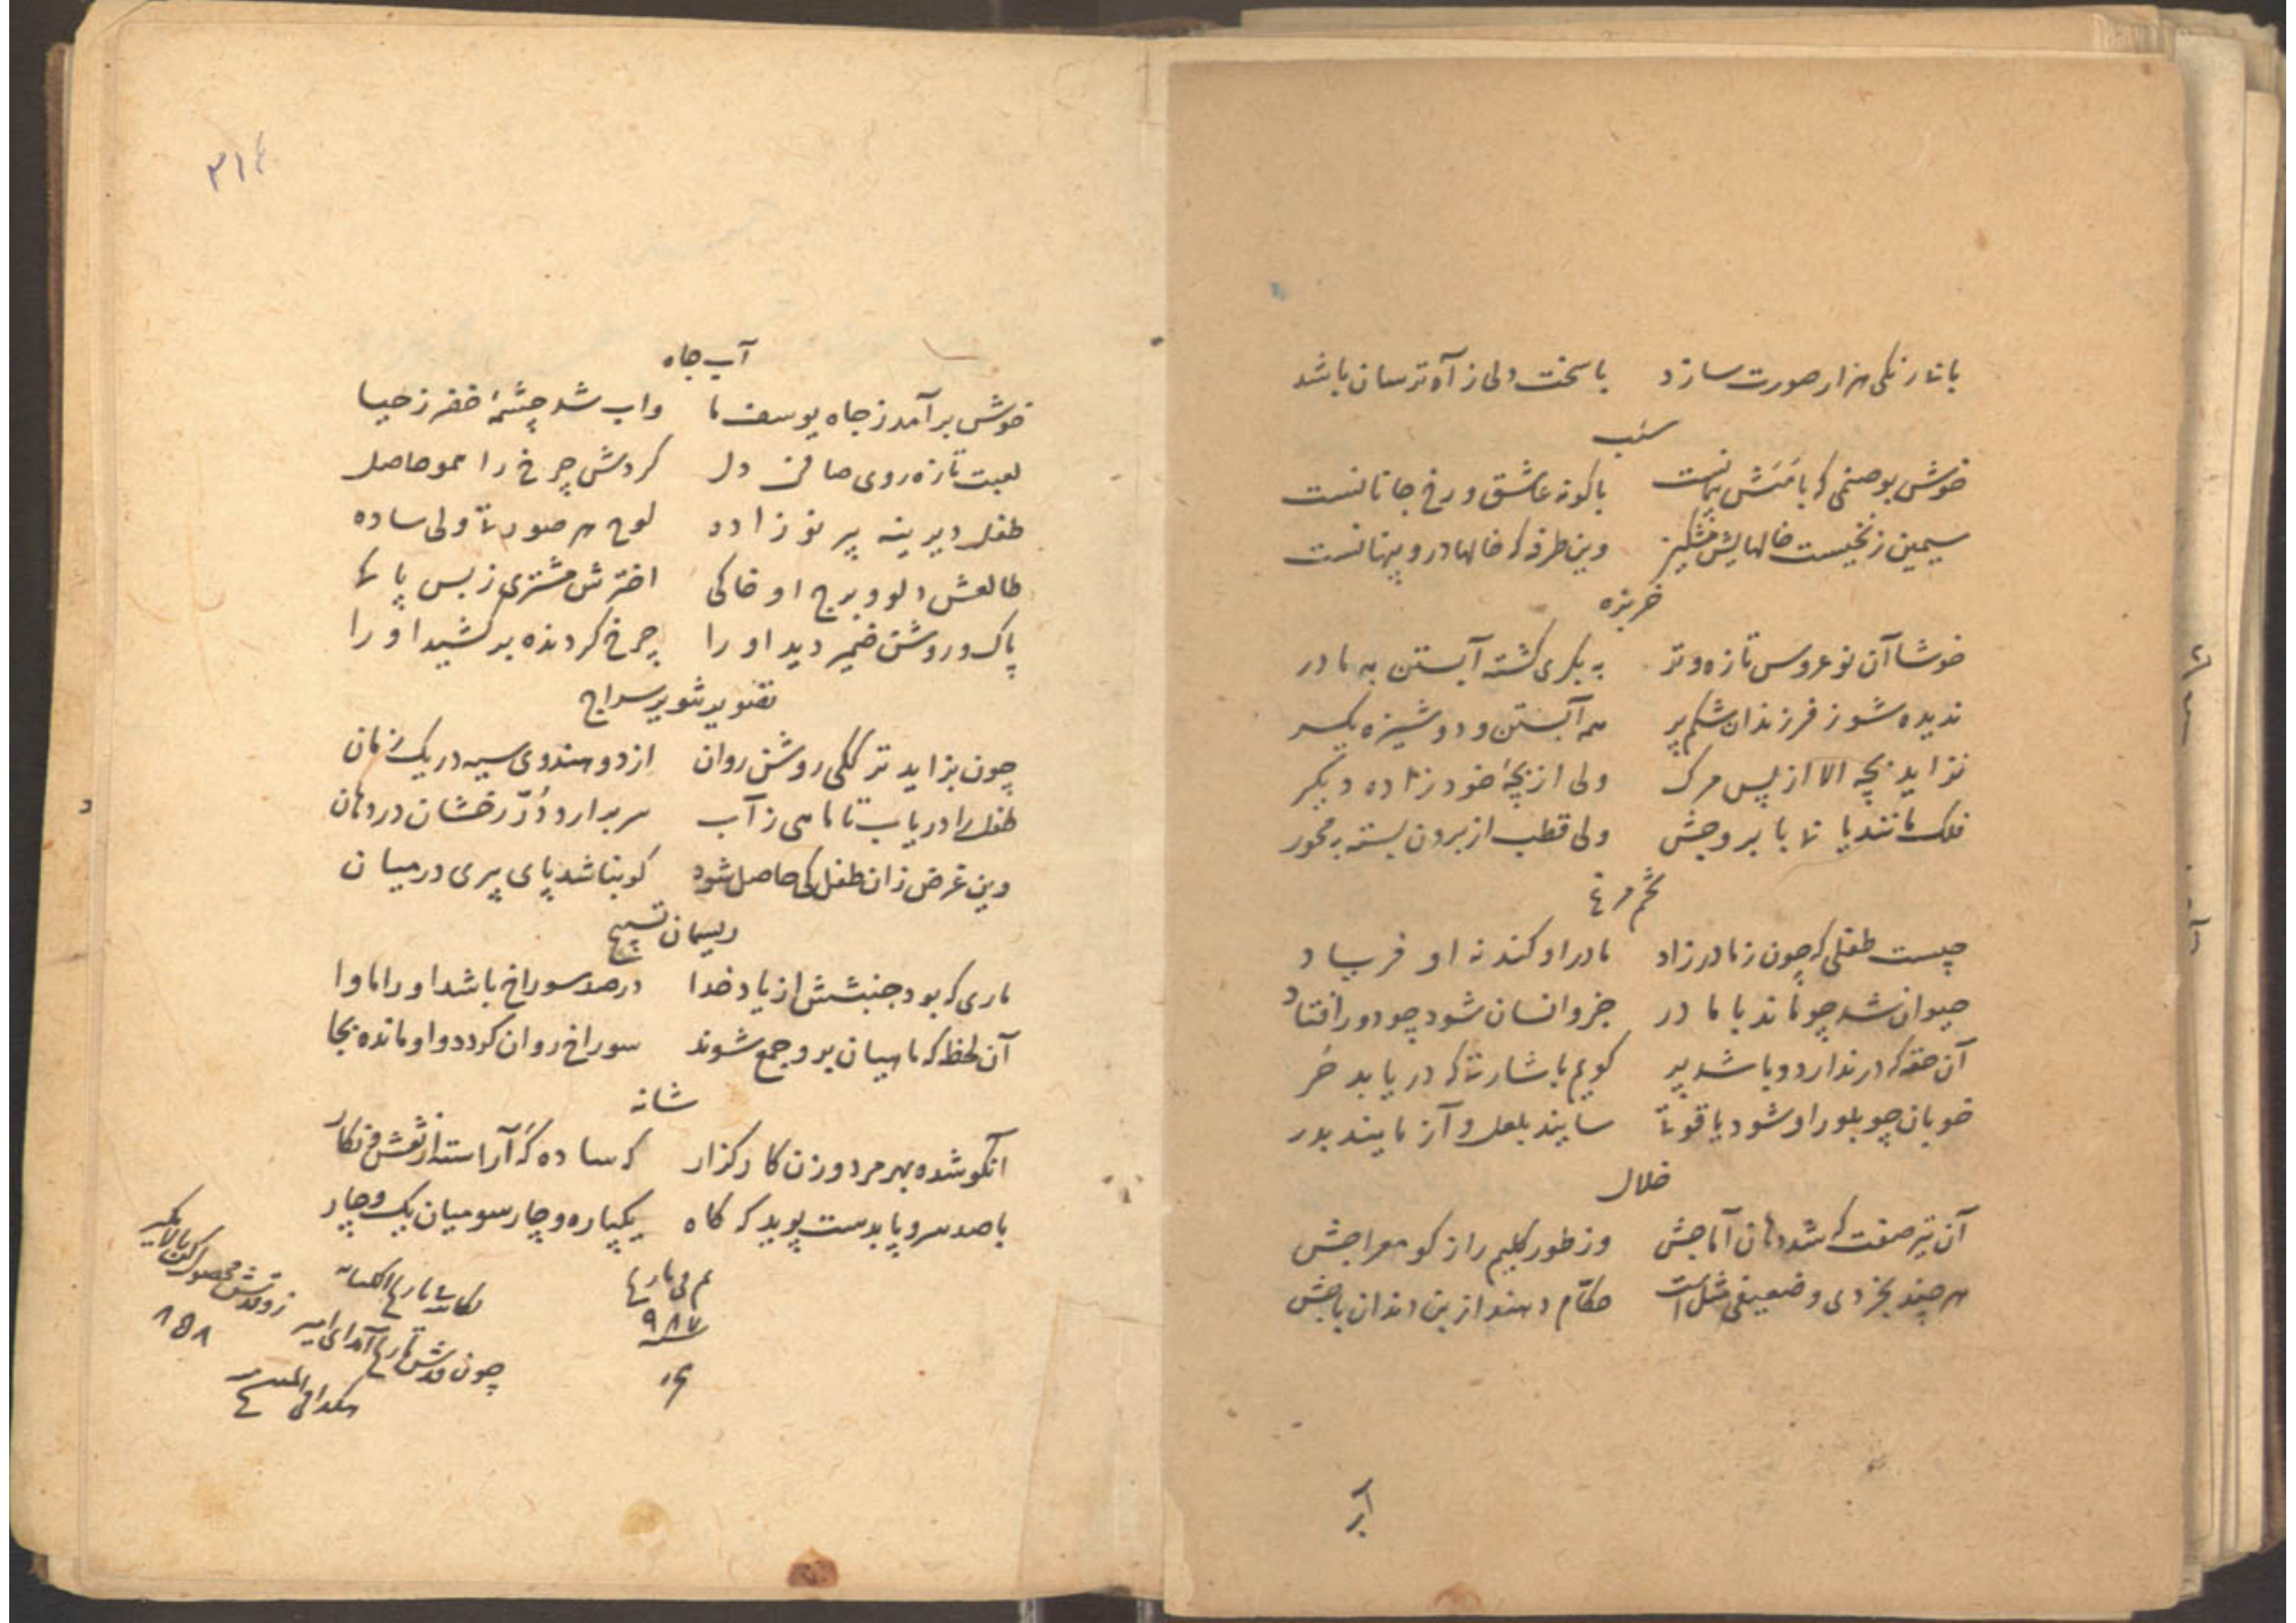 با نازکی هزار صورت سازد باسخت دلی ز آه ترسان باشد
سیب
خوش بو صنمی که با منش پیمانست باگونه عاشق و رخ جانانست
سیمین زنخیست خالهایش مشکین وین طرفه که خالها درو پنهانست
خربزه
خوشا آن نوعروس تازه و تر به بکری گشته آبستن به مادر
ندیده شو ز فرزندان شکم پر همه آبستن و دوشیزه یکسر
نزاید بچه الا از پس مرگ ولی از بچهٔ خود زاده دیگر
فلک مانند با بروجش ولی قطب از برون بسته به محور
تخم مرغ
چیست طفلی که چون ز مادر زاد مادر او کند نه او فریاد
حیوان شد چو ماند با مادر جزو انسان شود چو دور افتاد
آن حقه که در ندارد و باشد پر گویم باشارتی که دریابد حر
خوبان چو بلور او شود یاقوتی سایند بلعل و آزمایند بدر
خلال
آن تیر صفت که شد دهان آماجش وز طور کلیم راز گو معراجش
هر چند بخردی و ضعیفی مثل است حکّام دهند از بن دندان باجش
آب
۳۱۶
آب چاه
خوش برآمد ز چاه یوسف ما واب شد چشمهٔ خضر ز حیا
لعبت تازه روی صافی دل گردش چرخ را همو حاصل
طفل دیرینه پیر نوزاده لوح هر صورتی ولی ساده
طالعش دلو و برج او خاکی اخترش مشتری ز بس پاکی
پاک و روشن ضمیر دید او را چرخ گردنده برکشید او را
تصویر تنویر سراج
چون بزاید ترککی روشن روان از دو هندوی سیه در یک زمان
طفل را دریاب تا ماهی ز آب سر برارد دُرّ رخشان در دهان
وین غرض زان طفل کی حاصل شود کو بناشد پای پیری در میان
ریسمان تسبیح
ماری که بود جنبشش از یاد خدا در صد سوراخ باشد او را ماوا
آن لحظه که ماهیان برو جمع شوند سوراخ روان گردد و او مانده بجا
شانه
آنکو شده بهر مرد و زن کارگزار که ساده گه آراسته از نقش و نگار
باصد سر و پا بدست پوید که گاه یکپاره و چارسو میان یک و چار
۹۸۷
۸۵۸